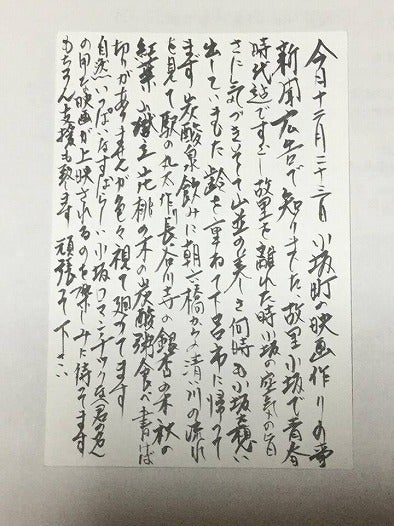 今日十二月二十三日 小坂町の映画作りの事
新聞広告で知りました、故里小坂で青春
時代過ですごし故里を離れた時小坂の空気の旨
さに気づきそして山並の美しき何時も小坂を想い
出していました齢を重ねて下呂市に帰って
ます 炭酸泉飲みに朝六橋から清い川の流れ
を見て駅の丸太作り長谷川寺の銀杏の木秋の
紅葉 花桃の木の炭酸粥食べ書けば
切りがありませんが色々視て廻ってます
自然いっぱいなすばらしい小坂ロマンチックな(君の名
の用な映画が上映されるのを楽しみに待てます
もちろん支援も致します 頑張って下さい